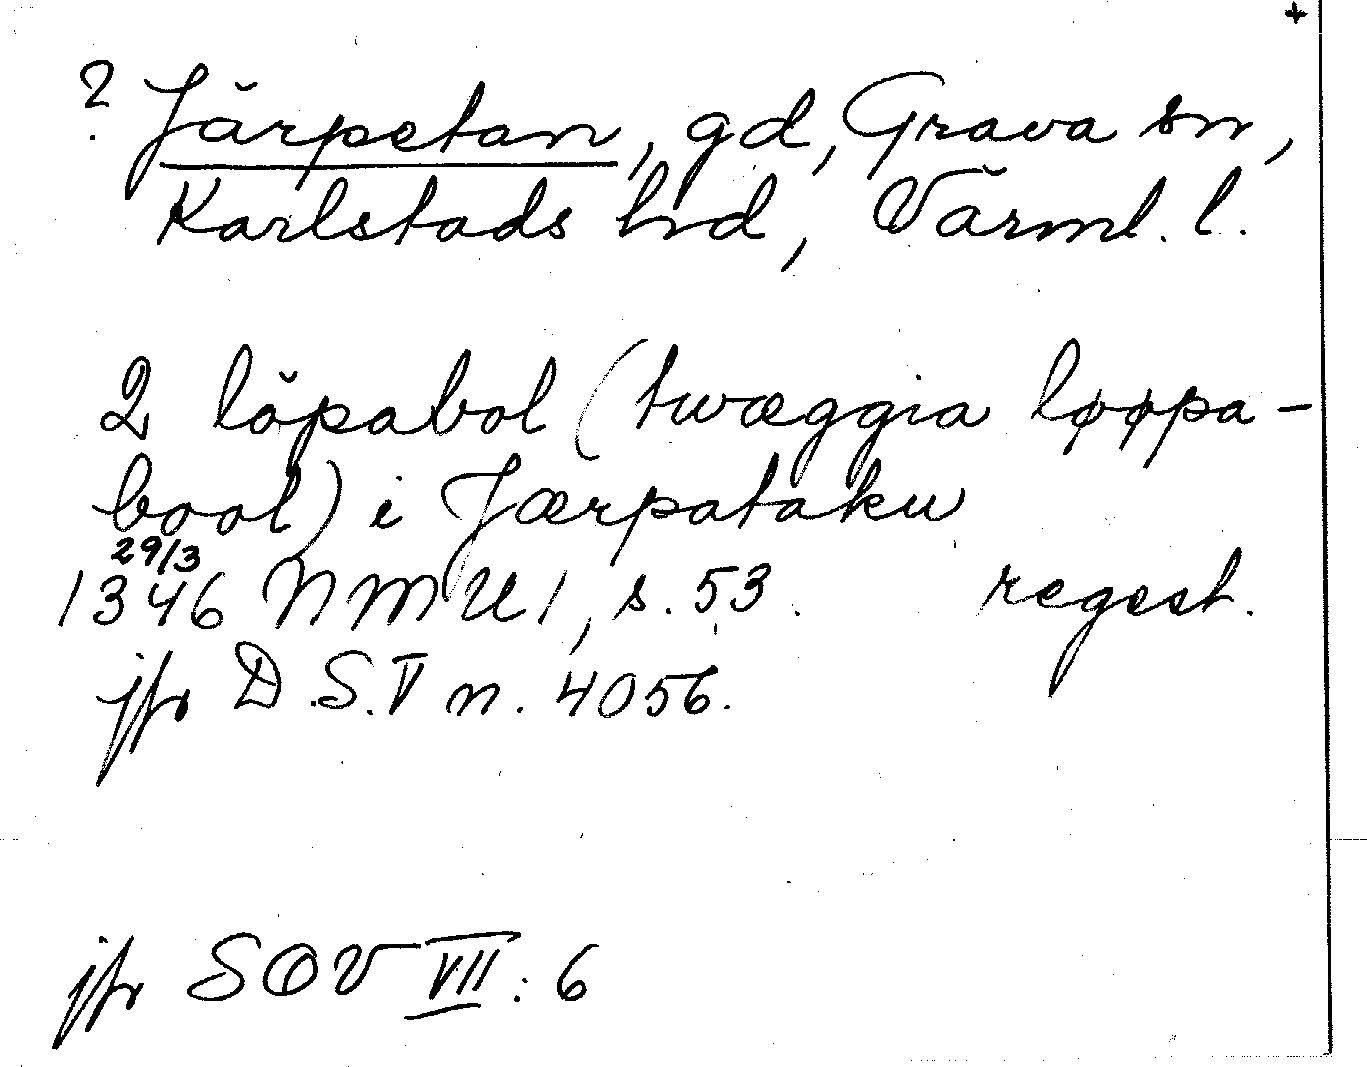 +
? Järpetan, gd, Grava sn,
Karlstads hd, Värml. l.
2 löpabol (twæggia løøpa-
bool) i Jærpataku
29/3
1346 NMU 1, s. 53. regest.
jfr D.S. V n. 4056.
jfr SOV VII: 6